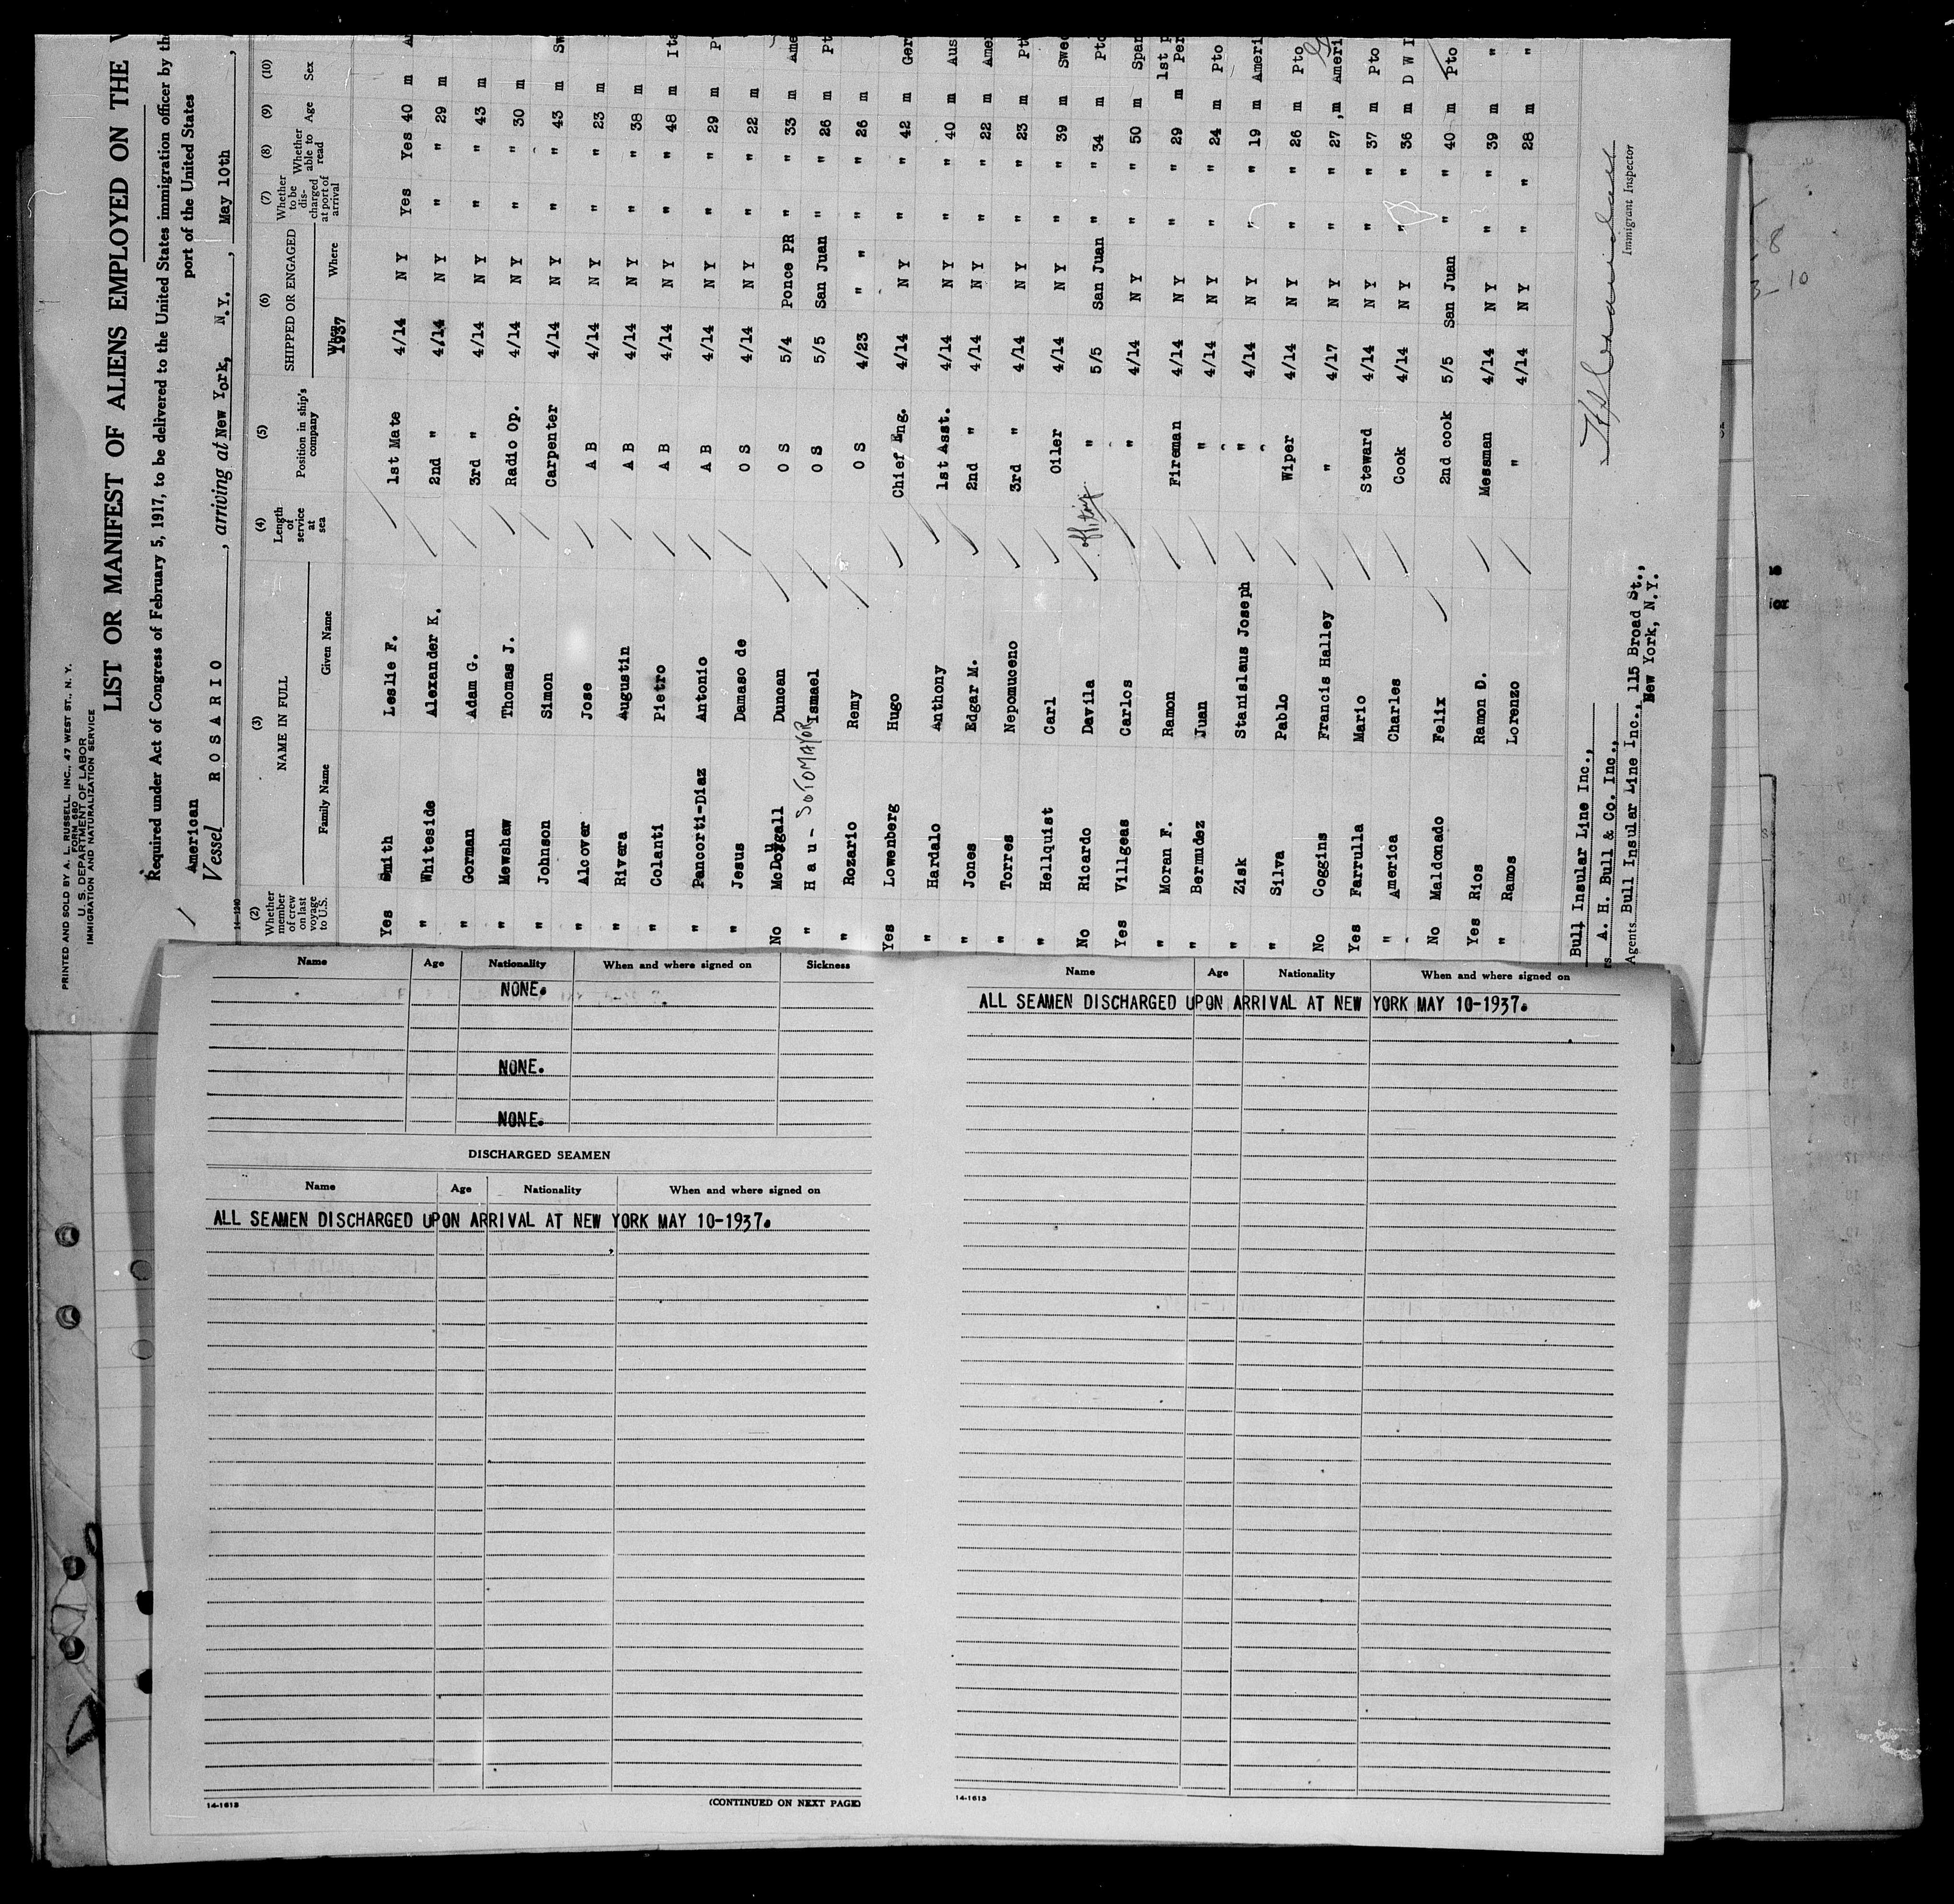 PRINTED AND SOLD BY A. L. RUSSELL, INC., 47 WEST ST., N. Y.
FORM 680
U. S. DEPARTMENT OF LABOR
IMMIGRATION AND NATURALIZATION SERVICE
LIST OR MANIFEST OF ALIENS EMPLOYED ON THE
Required under Act of Congress of February 5, 1917, to be delivered to the United States immigration officer by the
port of the United States
American
Vessel ROSARIO, arriving at New York, N.Y., May 10th,
14-1240
(2) (3) (4) (5) (6) (7) (8) (9) (10)
Whether member of crew on last voyage to U.S. NAME IN FULL Length of service at sea Position in ship's company SHIPPED OR ENGAGED Whether to be discharged at port of arrival Whether able to read Age Sex
Family Name Given Name When Where
1937
Yes Smith Leslie F. 1st Mate 4/14 N Y Yes Yes 40 m
" Whiteside Alexander K. 2nd " 4/14 N Y " " 29 m
" Gorman Adam G. 3rd " 4/14 N Y " " 43 m
" Mewshaw Thomas J. Radio Op. 4/14 N Y " " 30 m
" Johnson Simon Carpenter 4/14 N Y " " 43 m Sw
" Alcover Jose A B 4/14 N Y " " 23 m
" Rivera Augustin A B 4/14 N Y " " 38 m
" Colanti Pietro A B 4/14 N Y " " 48 m Ita
" Pancorti-Diaz Antonio A B 4/14 N Y " " 29 m P
" Jesus Damaso de O S 4/14 N Y " " 22 m
No McDougall Duncan O S 5/4 Ponce PR " " 33 m Ame
" Hau - SOTOMAYOR Ismael O S 5/5 San Juan " " 26 m Pt
" Rozario Remy O S 4/23 " " " " 26 m
Yes Lowenberg Hugo Chief Eng. 4/14 N Y " " 42 m Ger
" Hardalo Anthony 1st Asst. 4/14 N Y " " 40 m Aus
" Jones Edgar M. 2nd " 4/14 N Y " " 22 m Amer
" Torres Nepomuceno 3rd " 4/14 N Y " " 23 m Pt
" Hellquist Carl Oiler 4/14 N Y " " 39 m Swe
No Ricardo Davila " 5/5 San Juan " " 34 m Pto
Yes Villgeas Carlos " 4/14 N Y " " 50 m Span
" Moran F. Ramon Fireman 4/14 N Y " " 29 m 1st p Per
" Bermudez Juan " 4/14 N Y " " 24 m Pto
" Zisk Stanislaus Joseph " 4/14 N Y " " 19 m Ameri
" Silva Pablo Wiper 4/14 N Y " " 26 m Pto
No Coggins Francis Halley " 4/17 N Y " " 27 m Ameri
Yes Farrulla Mario Steward 4/14 N Y " " 37 m Pto
" America Charles Cook 4/14 N Y " " 36 m D W I
No Maldonado Felix 2nd cook 5/5 San Juan " " 40 m Pto
Yes Rios Ramon D. Messman 4/14 N Y " " 39 m "
" Ramos Lorenzo " 4/14 N Y " " 28 m "
Bull Insular Line Inc.,
A. H. Bull & Co. Inc.,
Agents Bull Insular Line Inc., 115 Broad St.,
New York, N.Y.
Immigrant Inspector
Name Age Nationality When and where signed on Sickness
NONE.
NONE.
NONE.
DISCHARGED SEAMEN
Name Age Nationality When and where signed on
ALL SEAMEN DISCHARGED UPON ARRIVAL AT NEW YORK MAY 10-1937.
14-1613
(CONTINUED ON NEXT PAGE)
Name Age Nationality When and where signed on
ALL SEAMEN DISCHARGED UPON ARRIVAL AT NEW YORK MAY 10-1937.
14-1613